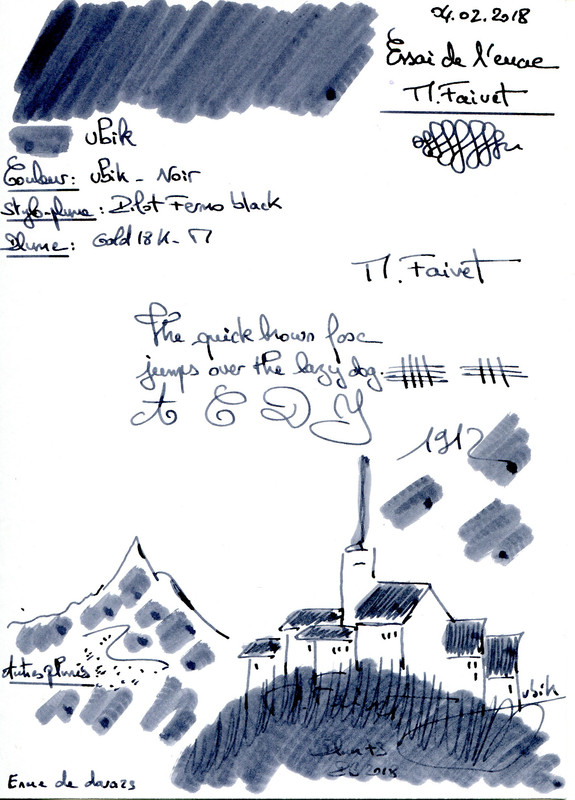 04.02.2018
Essai de l'encre
M. Faivet
ubik
Couleur: ubik - Noir
Stylo-plume: Pilot Fermo black
Plume: Gold 18K - M
M. Faivet
The quick brown fox
jumps over the lazy dog.
A C D Y
1912
ubik
2018